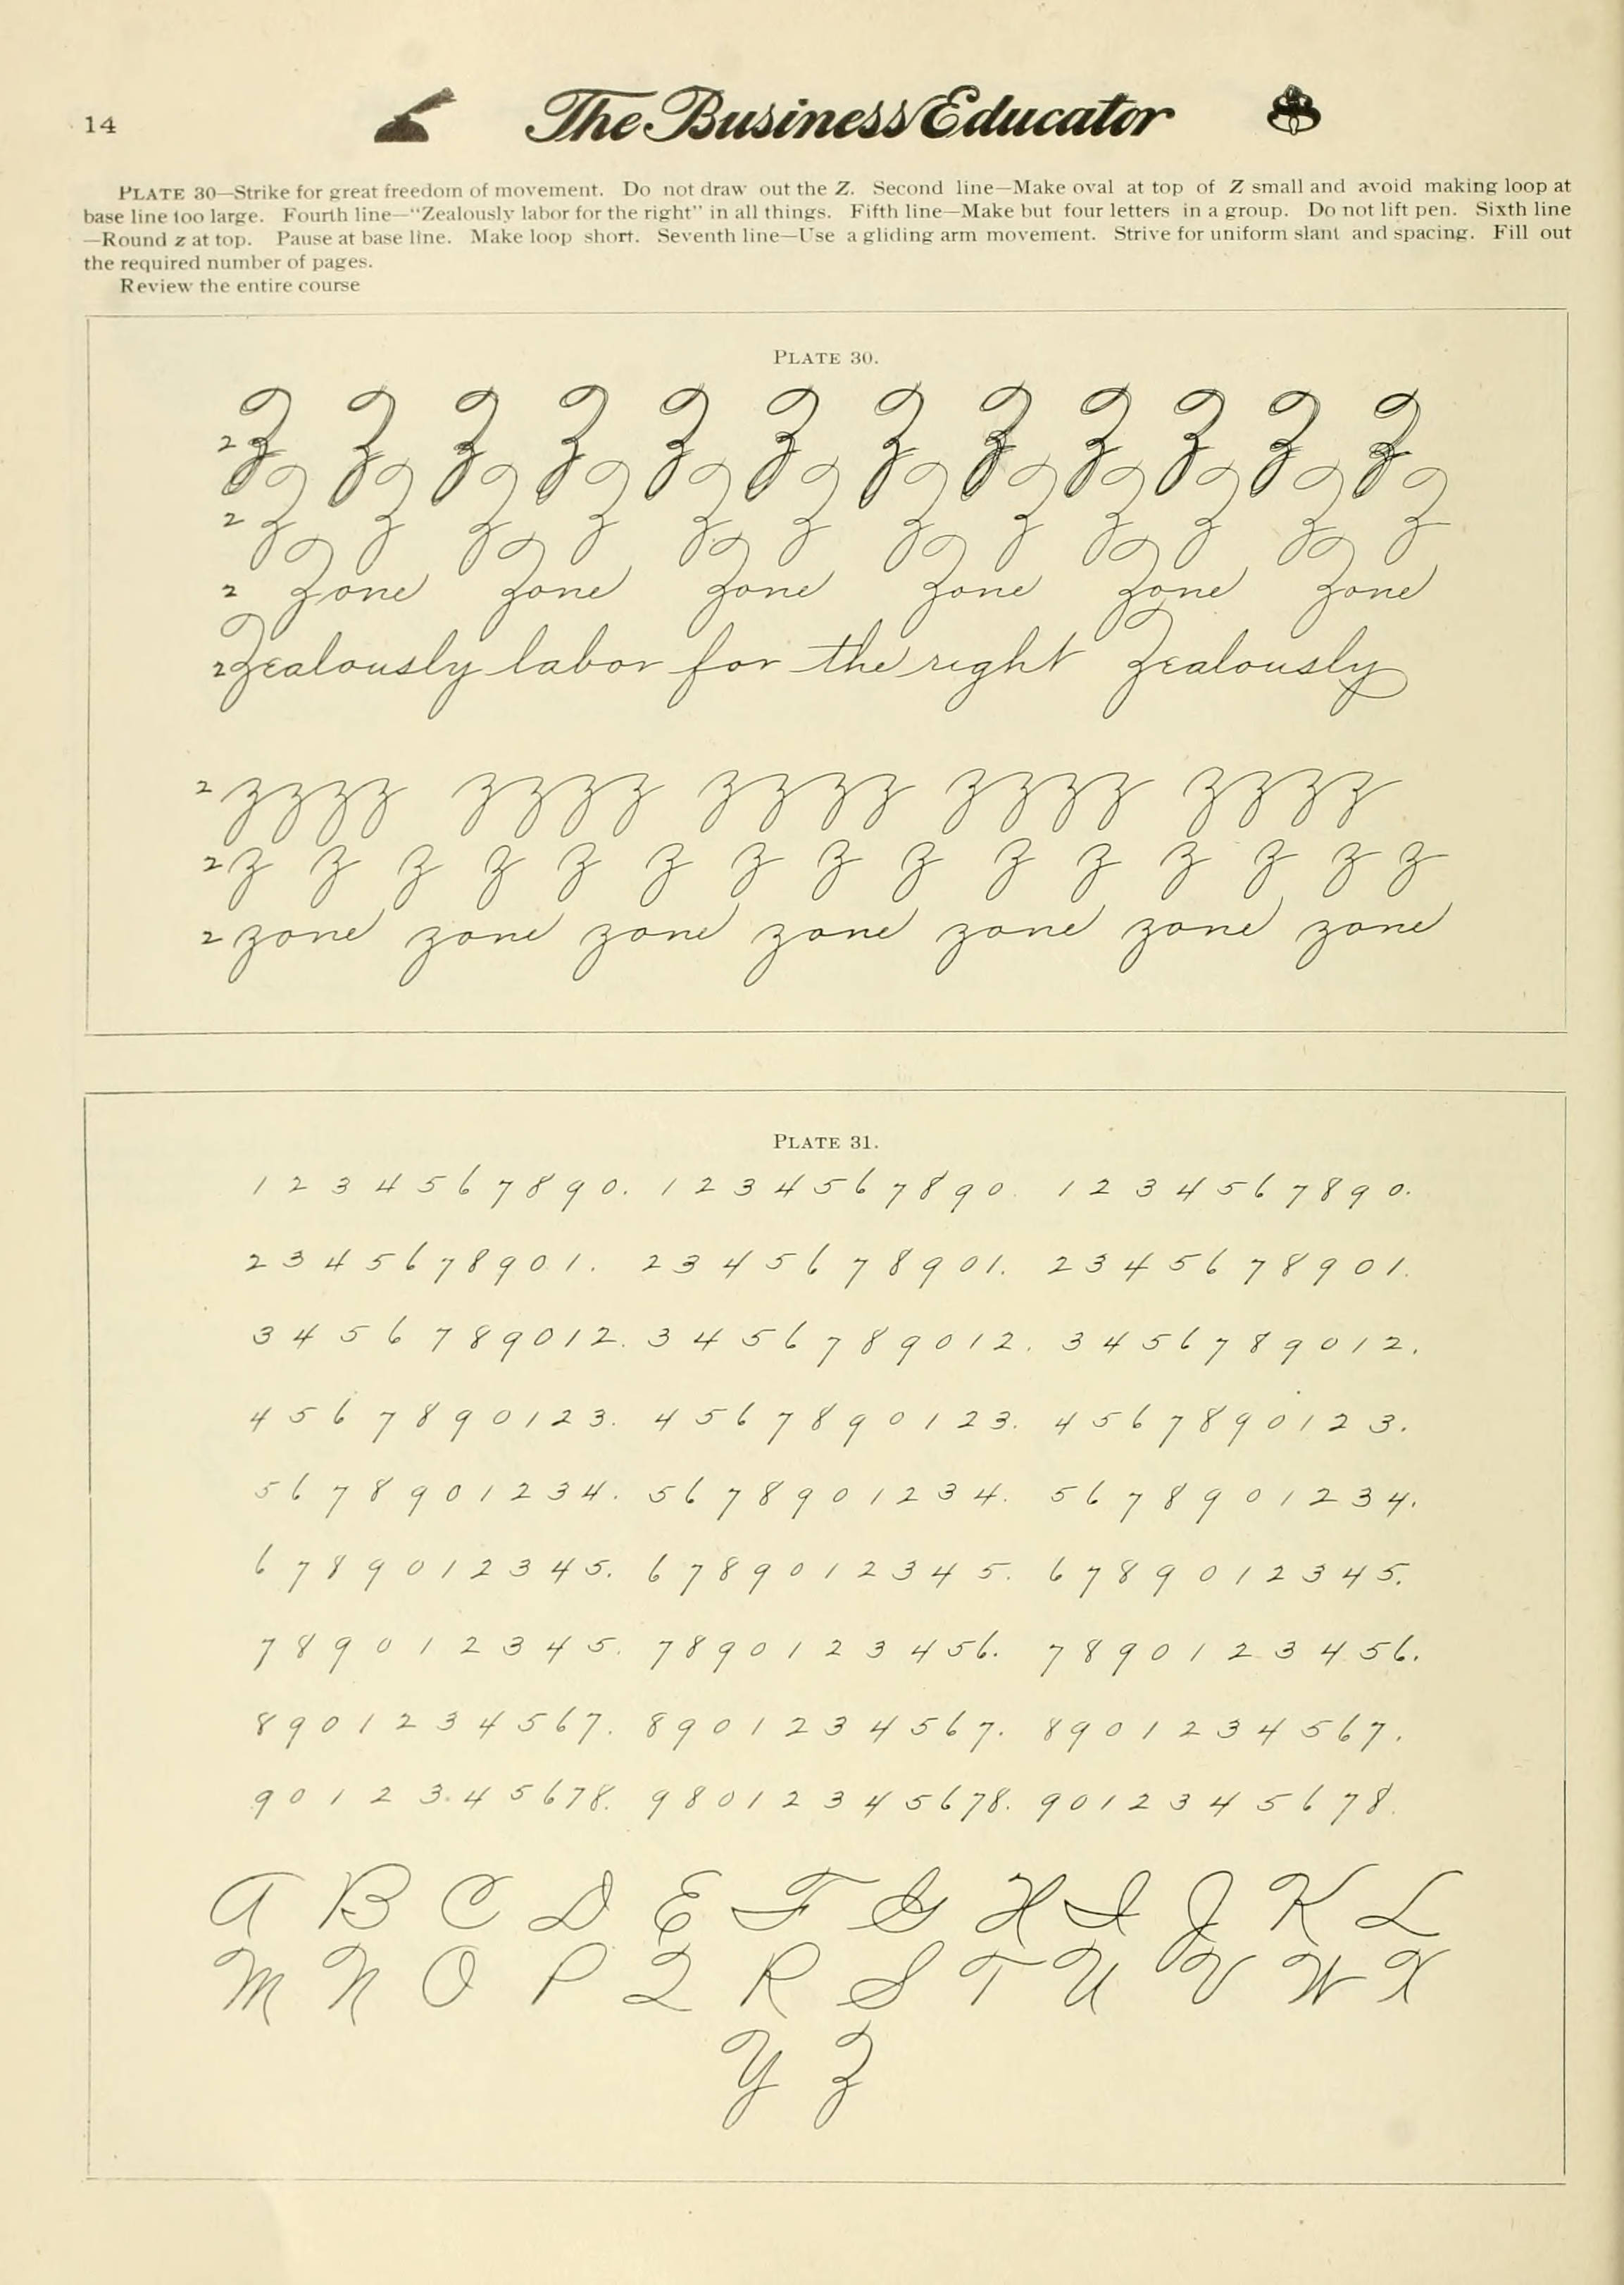 14
The Business Educator
PLATE 30—Strike for great freedom of movement. Do not draw out the Z. Second line—Make oval at top of Z small and avoid making loop at
base line too large. Fourth line—"Zealously labor for the right" in all things. Fifth line—Make but four letters in a group. Do not lift pen. Sixth line
—Round z at top. Pause at base line. Make loop short. Seventh line—Use a gliding arm movement. Strive for uniform slant and spacing. Fill out
the required number of pages.
Review the entire course
PLATE 30.
2 Z Z Z Z Z Z Z Z Z Z Z Z
2 Z Z Z Z Z Z Z Z Z Z Z Z
2 Zone Zone Zone Zone Zone Zone
2 Zealously labor for the right Zealously
2 zzzz zzzz zzzz zzzz zzzz
2 z z z z z z z z z z z z z z z
2 zone zone zone zone zone zone zone
PLATE 31.
1 2 3 4 5 6 7 8 9 0. 1 2 3 4 5 6 7 8 9 0. 1 2 3 4 5 6 7 8 9 0.
2 3 4 5 6 7 8 9 0 1. 2 3 4 5 6 7 8 9 0 1. 2 3 4 5 6 7 8 9 0 1.
3 4 5 6 7 8 9 0 1 2. 3 4 5 6 7 8 9 0 1 2. 3 4 5 6 7 8 9 0 1 2.
4 5 6 7 8 9 0 1 2 3. 4 5 6 7 8 9 0 1 2 3. 4 5 6 7 8 9 0 1 2 3.
5 6 7 8 9 0 1 2 3 4. 5 6 7 8 9 0 1 2 3 4. 5 6 7 8 9 0 1 2 3 4.
6 7 8 9 0 1 2 3 4 5. 6 7 8 9 0 1 2 3 4 5. 6 7 8 9 0 1 2 3 4 5.
7 8 9 0 1 2 3 4 5. 7 8 9 0 1 2 3 4 5 6. 7 8 9 0 1 2 3 4 5 6.
8 9 0 1 2 3 4 5 6 7. 8 9 0 1 2 3 4 5 6 7. 8 9 0 1 2 3 4 5 6 7.
9 0 1 2 3. 4 5 6 7 8. 9 8 0 1 2 3 4 5 6 7 8. 9 0 1 2 3 4 5 6 7 8.
A B C D E F G H I J K L
M N O P Q R S T U V W X
Y Z